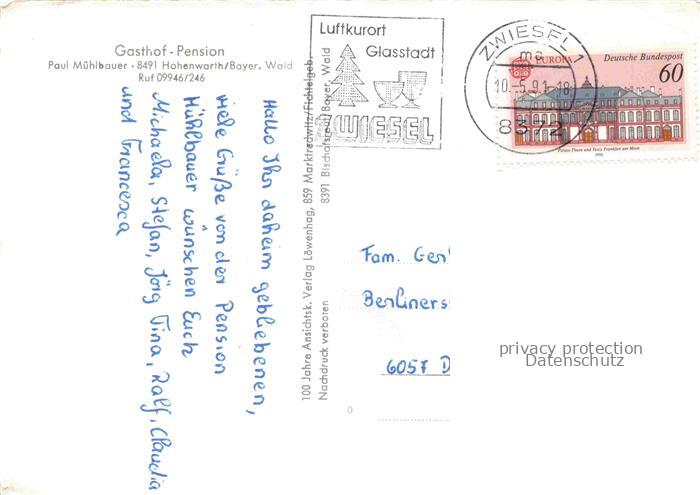 Gasthof - Pension
Paul Mühlbauer · 8491 Hohenwarth/Bayer. Wald
Ruf 09946/246
Hallo Ihr daheim gebliebenen,
viele Grüße von der Pension
Mühlbauer wünschen Euch
Michaela, Stefan, Jörg Tina, Ralf, Claudia
und Francesca
100 Jahre Ansichtsk. Verlag Löwenhag, 859 Marktredwitz/Fichtelgeb.
8391 Bischofsreut/Bayer. Wald
Nachdruck verboten
Luftkurort
Glasstadt
ZWIESEL
ZWIESEL 1
ma
10.-5.91-18
8372
EUROPA
Deutsche Bundespost
60
Palais Thurn und Taxis Frankfurt am Main
1990
Fam. Ger
Berliners
6057 D
privacy protection
Datenschutz
0